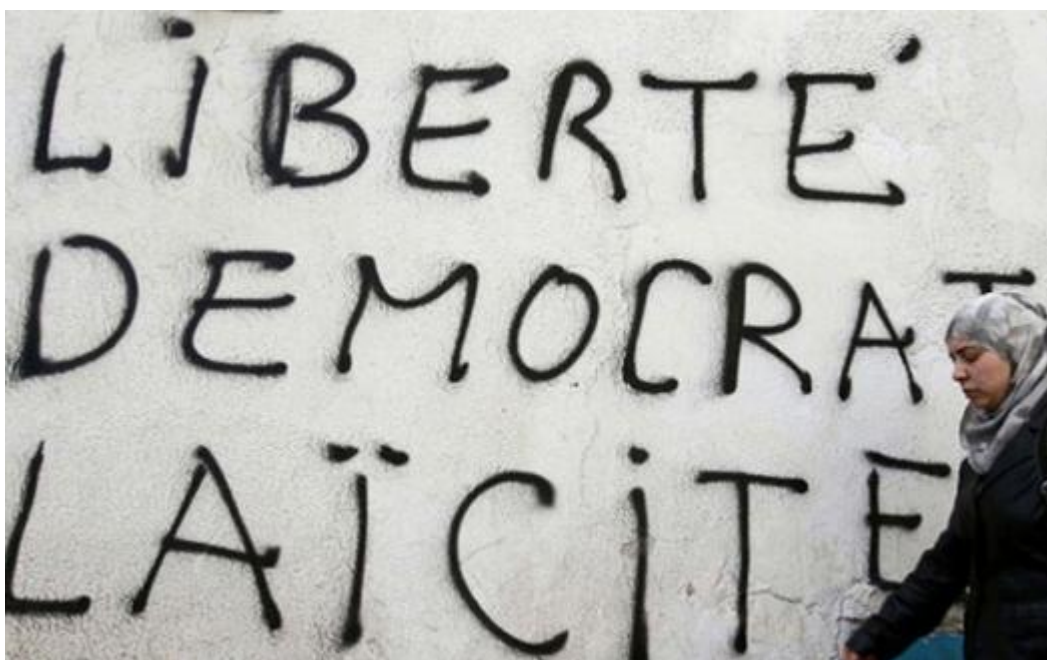 LIBERTÉ
DEMOCRAT
LAÏCITE